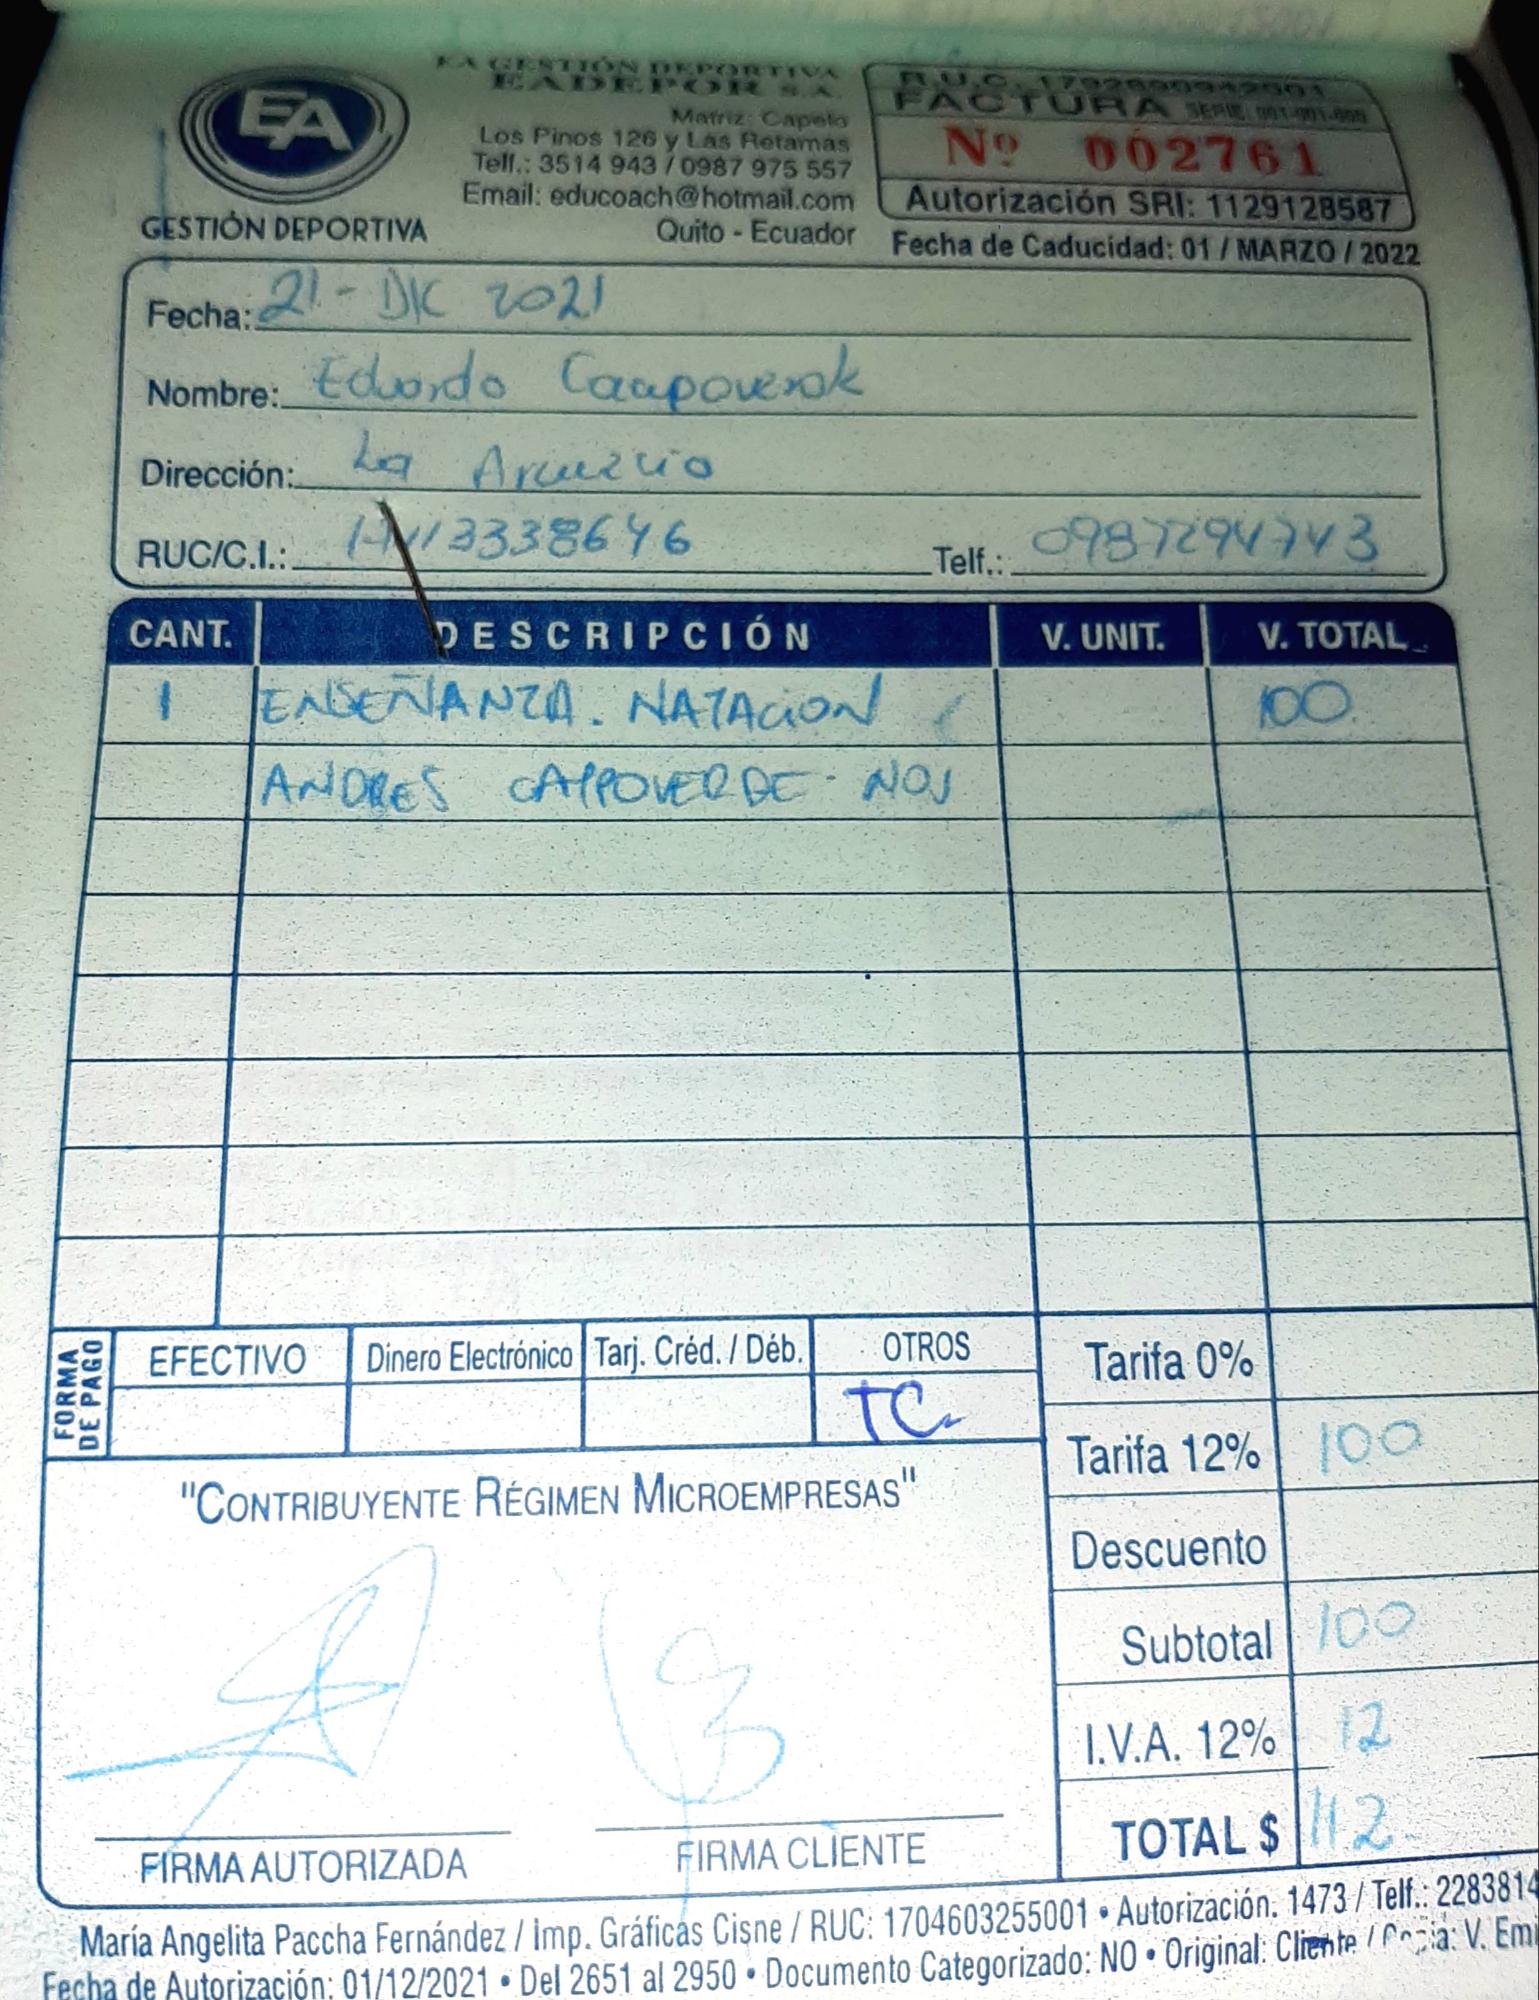 EA
GESTIÓN DEPORTIVA
EA GESTIÓN DEPORTIVA
EADEPOR S.A.
Matriz: Capelo
Los Pinos 126 y Las Retamas
Telf.: 3514 943 / 0987 975 557
Email: educoach@hotmail.com
Quito - Ecuador
R.U.C. 1792690942001
FACTURA SERIE: 001-001-000
Nº 002761
Autorización SRI: 1129128587
Fecha de Caducidad: 01 / MARZO / 2022
Fecha: 21 - DIC 2021
Nombre: Eduardo
Dirección: La
RUC/C.I.: 1713338646 Telf.: 0987294743
CANT. DESCRIPCIÓN V. UNIT. V. TOTAL
1 ENSEÑANZA. NATACION 100
ANDRES CAMPOVERDE NOV
FORMA DE PAGO
EFECTIVO Dinero Electrónico Tarj. Créd. / Déb. OTROS
TC
Tarifa 0%
Tarifa 12% 100
Descuento
Subtotal 100
I.V.A. 12% 12
TOTAL $ 112
"CONTRIBUYENTE RÉGIMEN MICROEMPRESAS"
FIRMA AUTORIZADA FIRMA CLIENTE
María Angelita Paccha Fernández / Imp. Gráficas Cisne / RUC: 1704603255001 • Autorización: 1473 / Telf.: 2283814
Fecha de Autorización: 01/12/2021 • Del 2651 al 2950 • Documento Categorizado: NO • Original: Cliente / Copia: V. Emi